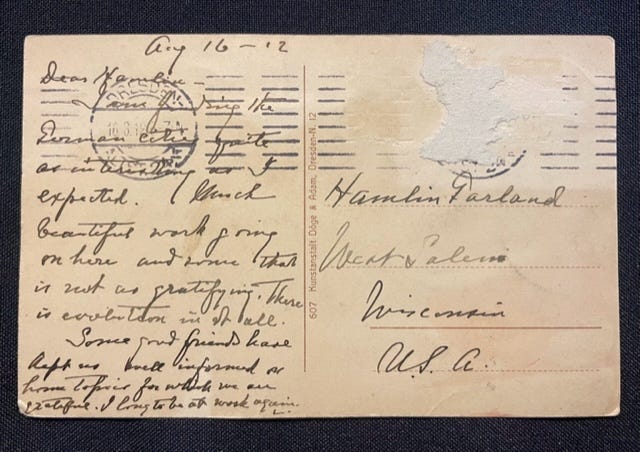 Aug 16 – 12
Dear Hamlin –
I am finding the
German cities quite
as interesting as I
expected. Much
beautiful work going
on here and some that
is not as gratifying. There
is evolution in it all.
Some good friends have
kept us well informed on
home topics for which we are
grateful. I long to be at work again.
DRESDEN
16.8.12
607 Kunstanstalt Döge & Adam, Dresden-N. 12
Hamlin Garland
West Salem
Wisconsin
U.S.A.